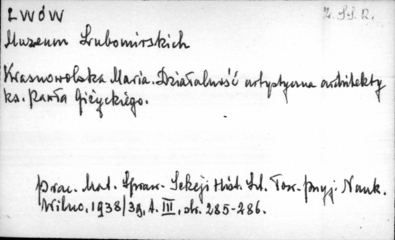 LWÓW
Z. S. S. R.
Muzeum Lubomirskich
Krasnowolska Maria. Działalność artystyczna architekty
ks. Pawła Giżyckiego.
Prac. Mat. Spraw. Sekcji Hist. Szt. Tow. Przyj. Nauk.
Wilno, 1938/39, t. III, str. 285-286.